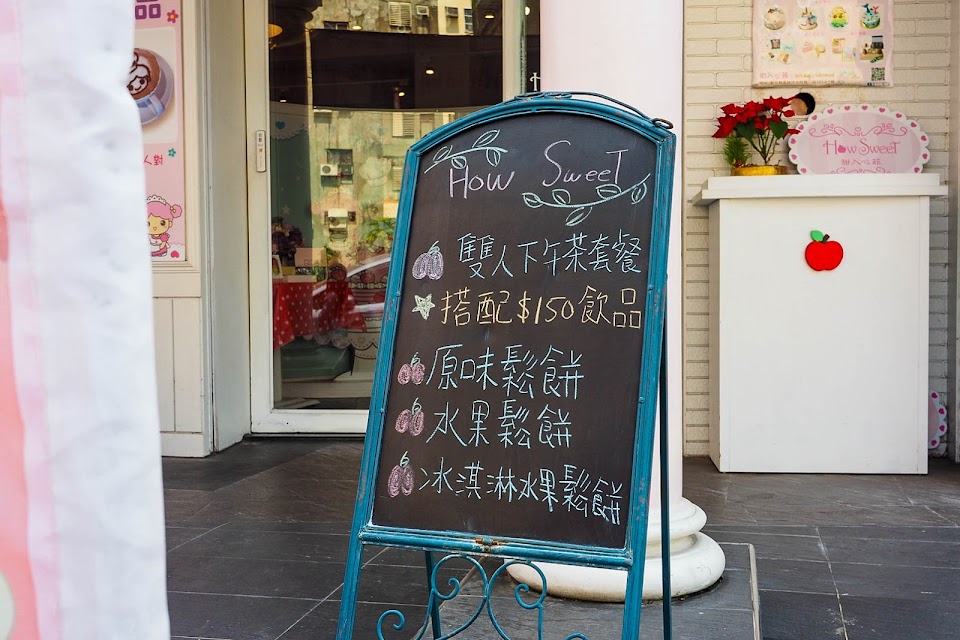 品
人對
How Sweet
雙人下午茶套餐
搭配$150飲品
原味鬆餅
水果鬆餅
冰淇淋水果鬆餅
How Sweet
甜入心菲